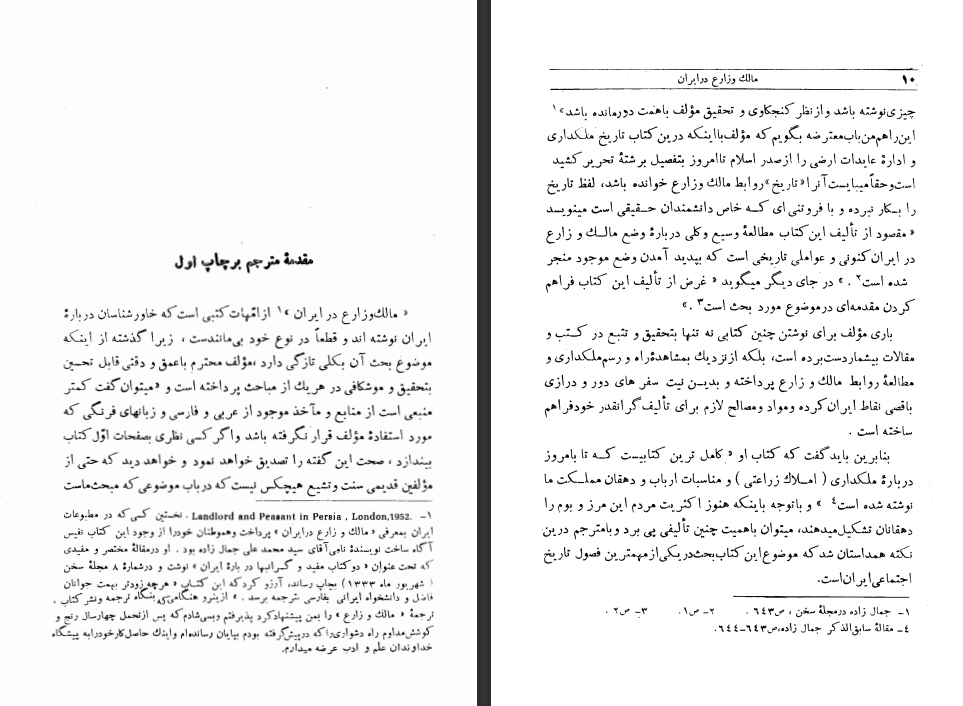 مقدمهٔ مترجم بر چاپ اول
« مالك وزارع در ایران »۱ از امّهات کتبی است که خاورشناسان دربارهٔ
ایران نوشته اند و قطعاً در نوع خود بی‌مانندست ، زیرا گذشته از اینکه
موضوع بحث آن بکلی تازگی دارد ،مؤلف محترم باعمق و دقتی قابل تحسین
بتحقیق و موشکافی در هریك از مباحث پرداخته است و «میتوان گفت کمتر
منبعی است از منابع و مآخذ موجود از عربی و فارسی و زبانهای فرنگی که
مورد استفادهٔ مؤلف قرار نگرفته باشد واگر کسی نظری بصفحات اوّل کتاب
بیندازد ، صحت این گفته را تصدیق خواهد نمود و خواهد دید که حتی از
مؤلفین قدیمی سنت وتشیع هیچکس نیست که درباب موضوعی که مبحث‌ماست
۱ــ Landlord and Peasant in Persia , London,1952. . نخستین کسی‌که در مطبوعات
ایران بمعرفی « مالك و زارع درایران » پرداخت وهموطنان خودرا از وجود این کتاب نفیس
آگاه ساخت نویسندهٔ نامی آقای سید محمد علی جمال زاده بود . او درمقالهٔ مختصر و مفیدی
که تحت عنوان « دوکتاب مفید و گرانبها در بارهٔ ایران » نوشت و درشمارهٔ ۸ مجلهٔ سخن
( شهریور ماه ۱۳۳۳) بچاپ رساند، آرزو کرد که این کتاب « هرچه زودتر بهمت جوانان
فاضل و دانشخواه ایرانی بفارسی ترجمه برسد . » ازینرو هنگامی‌که بنگاه ترجمه ونشر کتاب ،
ترجمهٔ « مالك و زارع » را بمن پیشنهاد کرد پذیرفتم وبسی شادم که پس ازتحمل چهارسال رنج و
کوشش مداوم راه دشواری را که درپیش گرفته بودم بپایان رسانده‌ام واینك حاصل کار خودرا به پیشگاه
خداوندان علم و ادب عرضه میدارم.
۱۰
مالك وزارع درایران
چیزی نوشته باشد واز نظر کنجکاوی و تحقیق مؤلف باهمت دورمانده باشد »۱
این راهم من باب معترضه بگویم که مؤلف بااینکه درین کتاب تاریخ ملکداری
و ادارهٔ عایدات ارضی را ازصدر اسلام تاامروز بتفصیل برشتهٔ تحریر کشید
است وحقاً میبایست آنرا« تاریخ »روابط مالك وزارع خوانده باشد، لفظ تاریخ
را بکار نبرده و با فروتنی ای که خاص دانشمندان حقیقی است مینویسد
« مقصود از تألیف این کتاب مطالعهٔ وسیع وکلی دربارهٔ وضع مالك و زارع
در ایران کنونی و عواملی تاریخی است که بپدید آمدن وضع موجود منجر
شده است۲ . » در جای دیگر میگوید « غرض از تألیف این کتاب فراهم
کردن مقدمه‌ای درموضوع مورد بحث است۳ .»
باری مؤلف برای نوشتن چنین کتابی نه تنها بتحقیق و تتبع در کتب و
مقالات بیشمار دست برده است، بلکه ازنزدیك بمشاهدهٔ راه و رسم ملکداری و
مطالعهٔ روابط مالك و زارع پرداخته و بدین نیت سفر های دور و درازی
باقصی نقاط ایران کرده ومواد ومصالح لازم برای تألیف گرانقدر خودفراهم
ساخته است .
بنابرین باید گفت که کتاب او « کامل ترین کتابیست که تا بامروز
دربارهٔ ملکداری ( املاك زراعتی ) و مناسبات ارباب و دهقان مملکت ما
نوشته شده است۴ » و باتوجه باینکه هنوز اکثریت مردم این مرز و بوم را
دهقانان تشکیل میدهند، میتوان باهمیت چنین تألیفی پی برد وبامترجم درین
نکته همداستان شد که موضوع این کتاب بحث دریکی ازمهمترین فصول تاریخ
اجتماعی ایران است.
۱ــ جمال زاده درمجلهٔ سخن ، ص۶۴۳ . ۲ــ ص۱. ۳ــ ص۲ .
۴ــ مقالهٔ سابق الذکر جمال زاده،ص۶۴۳ــ۶۴۴.